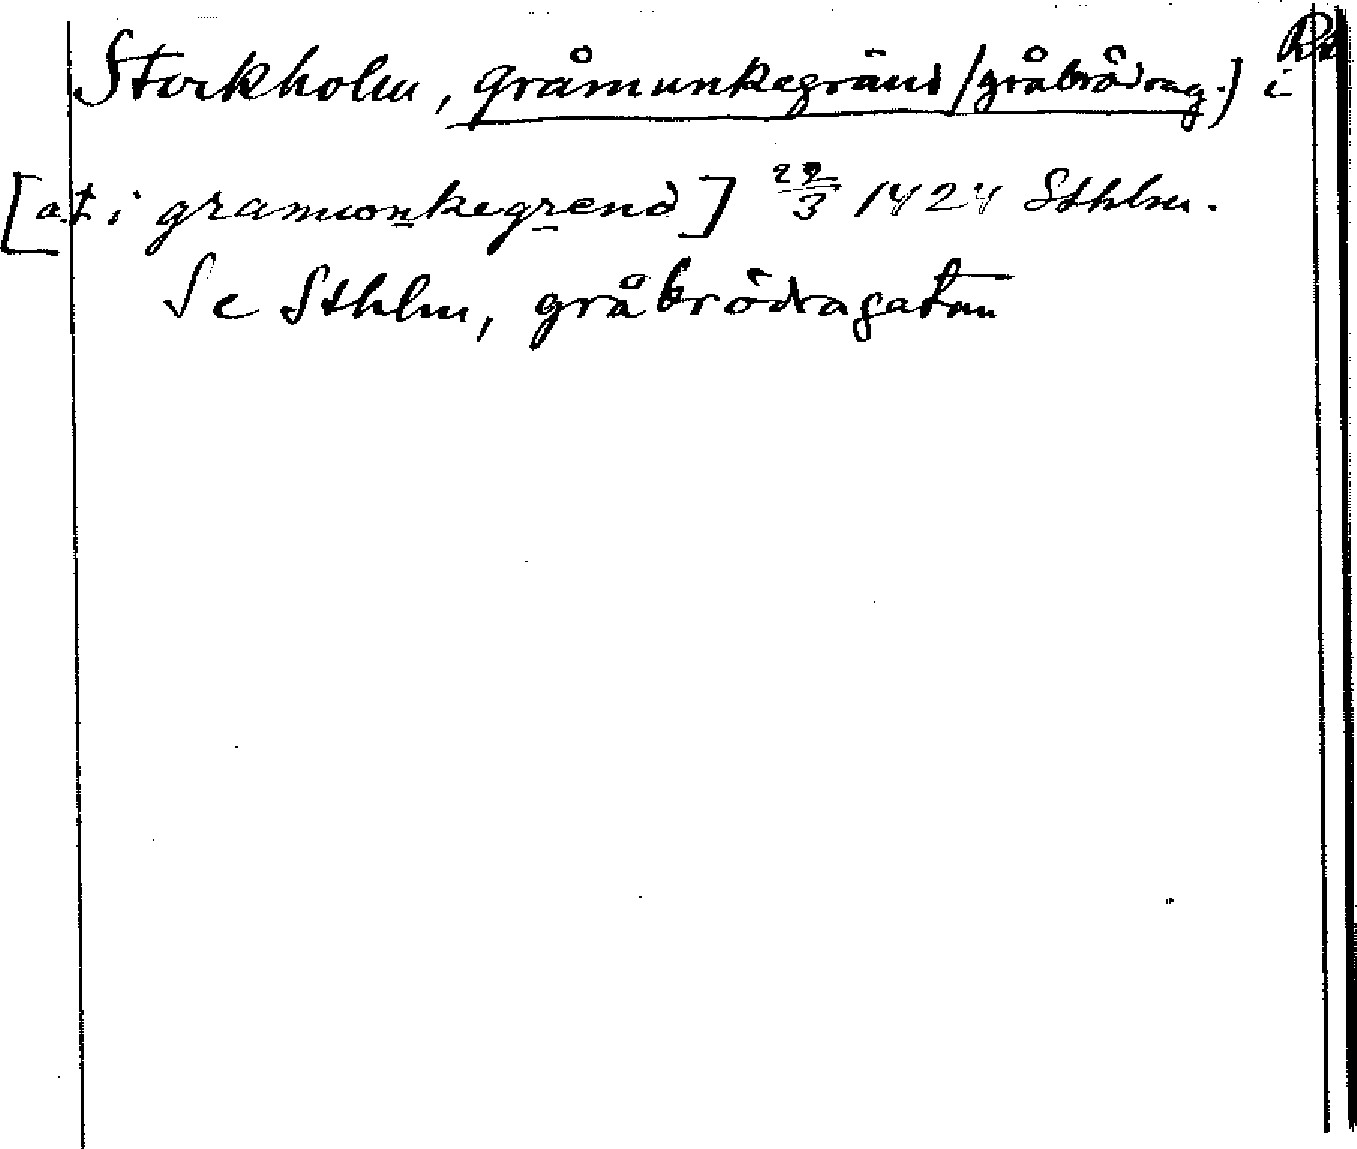 Stockholm, gråmunkegränd (gråbrödrag.) i
[at i gramwonkegrend] 29/3 1424 Sthlm.
Se Sthlm, gråbrödragatan